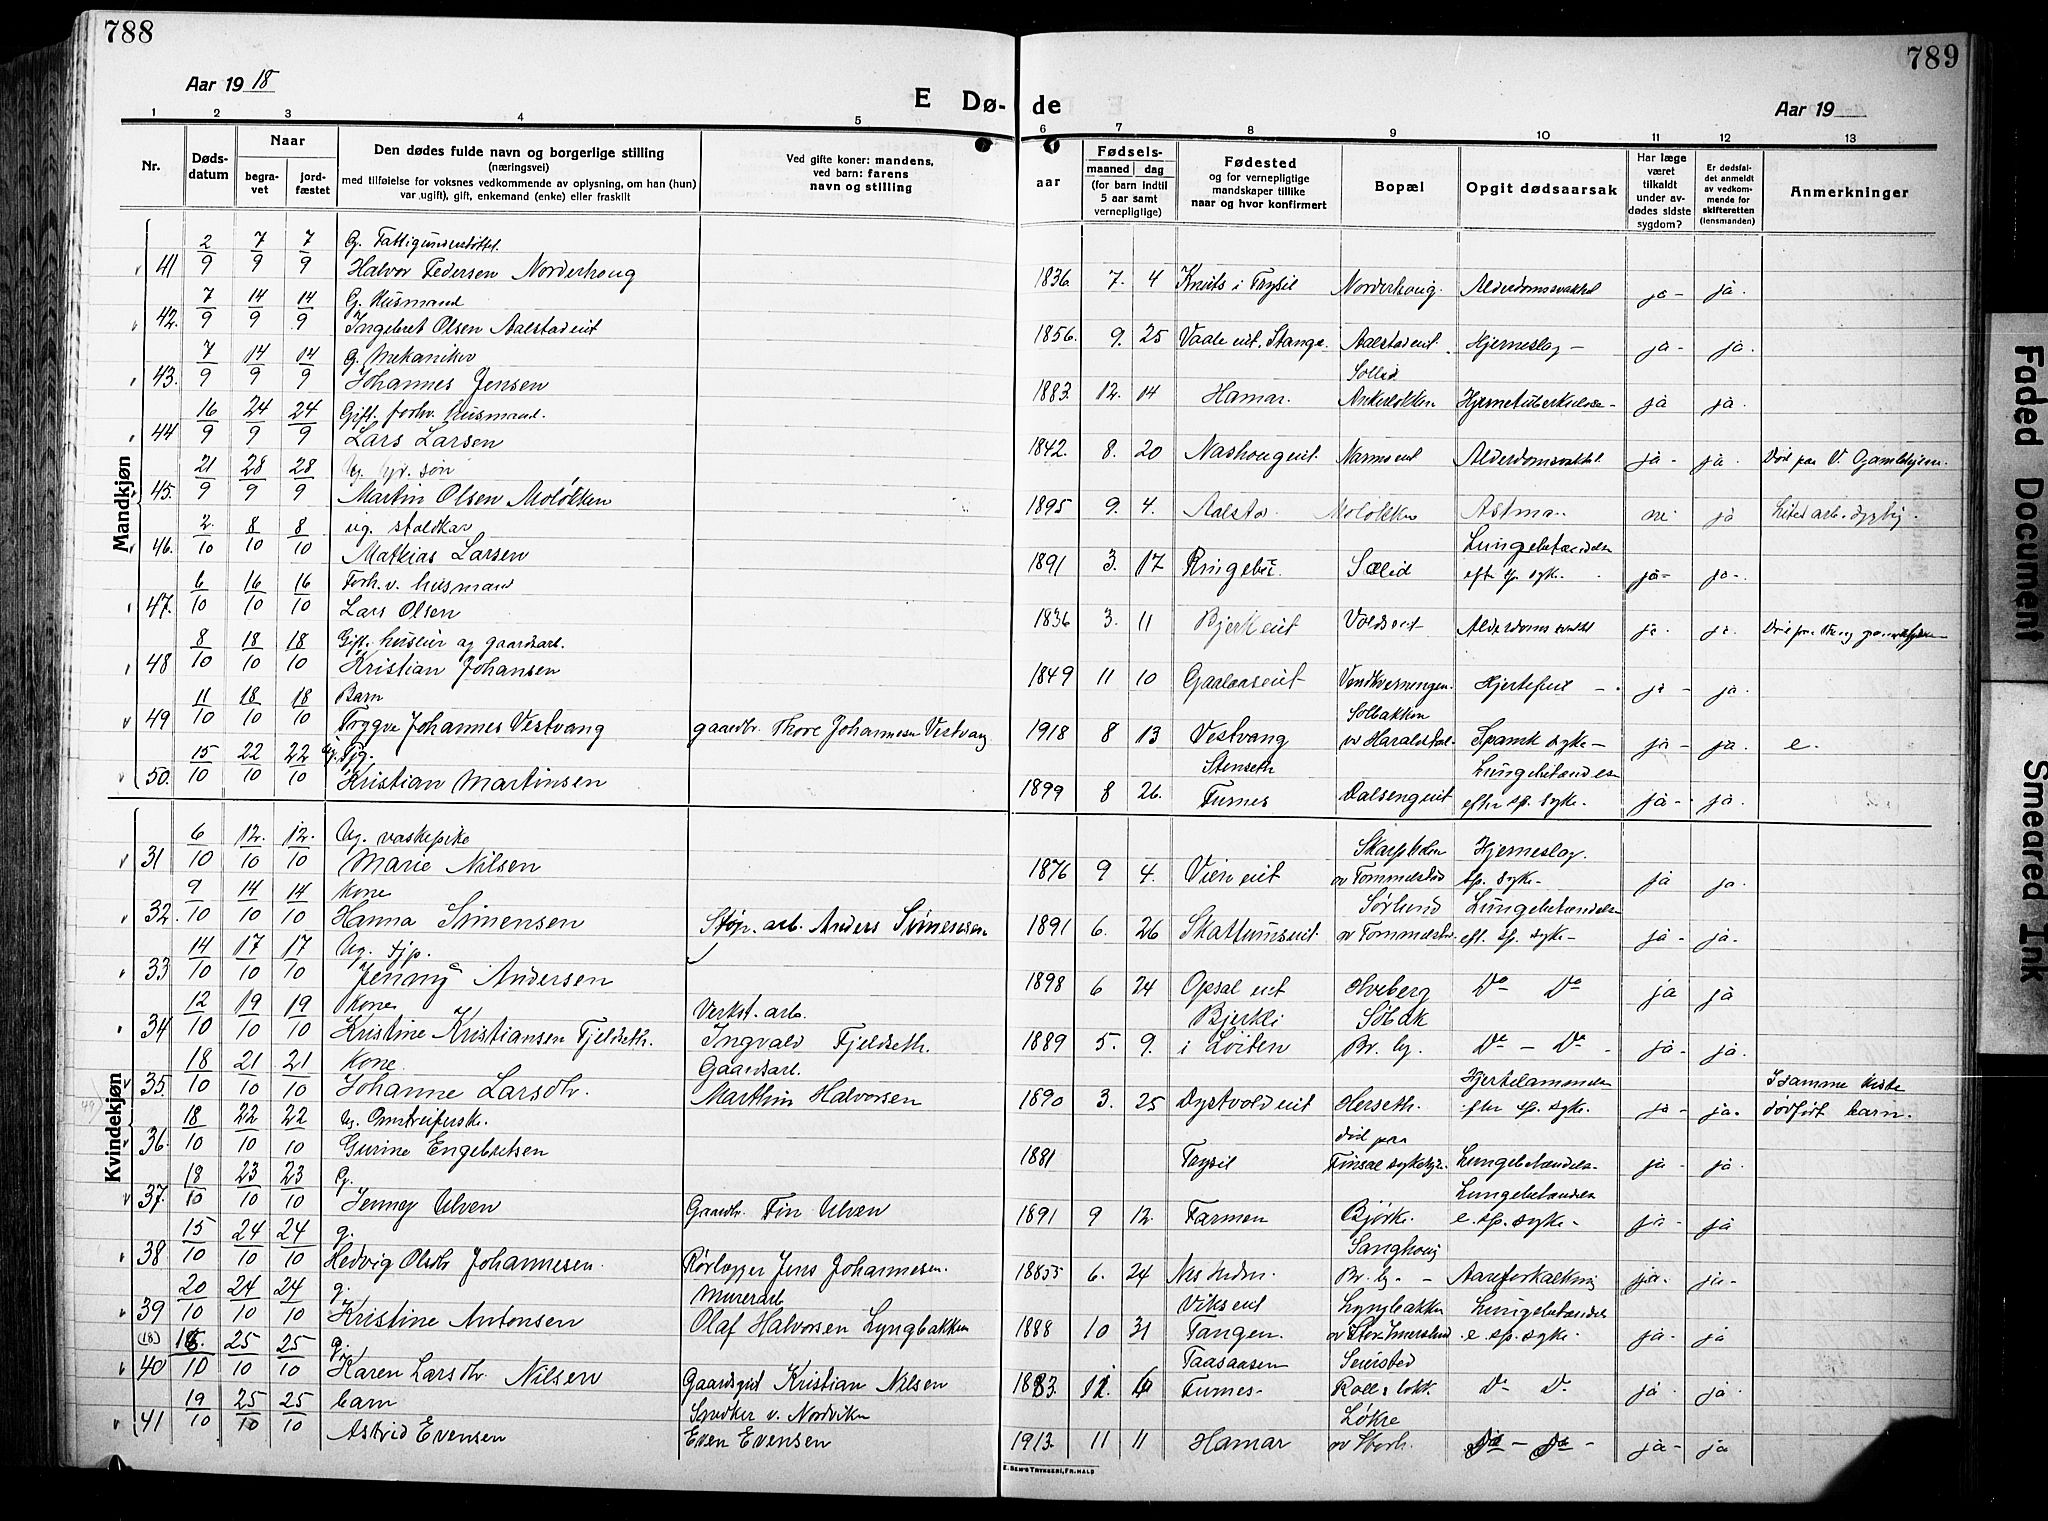 788
789
Aar 19 18
E Dø- de
Aar 19
1 2 3 4 5 6 7 8 9 10 11 12 13
Nr.
Døds-
datum
Naar
begra-
vet
jord-
fæstet
Den dødes fulde navn og borgerlige stilling
(næringsvei)
med tilføielse for voksnes vedkommende av oplysning, om han (hun)
var ugift), gift, enkemand (enke) eller fraskilt
Ved gifte koner: mandens,
ved barn: farens
navn og stilling
aar
Fødsels-
maaned dag
(for barn indtil
5 aar samt
vernepligtige)
Fødested
og for vernepligtige
mandskaper tillike
naar og hvor konfirmert
Bopæl
Opgit dødsaarsak
Har læge
været
tilkaldt
under av-
dødes sidste
sygdom?
Er dødsfal-
det anmeldt
av vedkom-
mende for
skifteretten
(lensmanden)
Anmerkninger
Mandkjøn
2/9 7/9 7/9 G.
41 Halvor Pedersen Norderhoug 1836. 7. 4 Knuts i Trysil Norderhoug. Alderdomssvakhet ja - ja.
7/9 14/9 14/9 G. Husmand
42. Ingebret Olsen Aalstadeiet 1856. 9. 25 Vaaleeiet. Stange. Aalstadeiet Hjerneslag - ja - ja.
7/9 14/9 14/9 G. Mekaniker
43. Johannes Jensen 1883. 12. 14 Hamar. Ankerløkken Hjernetuberkulose - ja ja.
16/9 24/9 24/9 Gift. forhv. husmand.
44 Lars Larsen 1842. 8. 20 Nashougeiet. Alderdomssvakhet ja - ja. Død paa V. Gamlehjem.
21/9 28/9 28/9 Ug. gr. søn
45. Martin Olsen Moløkken 1895 9. 4. Aalstad Moløkken Astma - nei ja
2./10 8/10 8/10 ug. staldkar
46. Mathias Larsen 1891 3. 17 Ringebu. Sælid Lungebetændelse
efter sp. syke. ja - ja -
6/10 16/10 16/10 Forh. v. husmand
47. Lars Olsen 1836 3. 11 Bjerkeeiet Voldseiet Alderdomssvakhet ja - ja.
8/10 18/10 18/10 Gift. husleier og gaardsarb.
48 Kristian Johansen 1849 11 10 Gaalaaseiet Vendkverningen. Hjertefeil - ja - ja.
11/10 18/10 18/10 Barn
49 Trygve Johannes Vestvang gaardbr. Thore Johannesen Vestvang 1918 8 13 Vestvang Solbakken
av Haralstad - Spansk syke - ja - ja. e.
15/10 22/10 22/10 Ug. Tjg.
50. Kristian Martinsen 1899 8 26. Stenseth
Furnes Dalsengeiet Lungebetændelse
efter sp. syke. ja - ja.
Kvindekjøn
6/10 12./10 12./10 Ug. vaskepike
31 Marie Nilsen 1876 9 4. Vieneiet
av Tommelstad Hjerneslag.
sp. syke - ja ja.
9/10 14/10 14/10 Kone
32. Hanna Simensen Støp. arb. Anders Simensen 1891 6. 26 Skattumseiet. Sørlund
av Tommelstad Lungebetændelse
eft. sp. syke - ja - ja -
14/10 17/10 17/10 Ug. tjp.
33 Jenny Andersen 1898 6 24 Opsal eiet Hveberg Do Do ja ja
12/10 19/10 19/10 Kone
34 Kristine Kristiansen Fjeldseth. Verkst. arb.
Ingvald Fjeldseth. 1889 5. 9. Bjerke
i Løiten Søbak
Br. by. Do - Do - ja - ja.
18/10 21/10 21/10 Kone
35. Johanne Larsdtr. Gaardsarb.
Marthin Halvorsen 1890 3. 25 Dystvoldeiet Herseth. Hjertelammelse
efter sp. syke. ja - ja. I samme kiste
dødfødt barn.
18/10 22/10 22/10 Ug. Omstreiferske.
36. Gurine Engebretsen 1881 Trysil død paa
Finsal sykehj. Lungebetændelse. ja - ja.
18/10 23/10 23/10 G.
37. Jenny Ulven Gaardbr. Fin Ulven 1891 9 12. Farmen Bjørke. Lungebetændelse
e. sp. syke - ja - ja
15/10 24/10 24/10 g.
38 Hedvig Olsdtr Johannesen. Rørlægger Jens Johannesen. 1855 6. 24 Nes Hedm. Sanghoug
Br. by. - Aareforkalkning ja - ja -
20/10 24/10 24/10 g.
39 Kristine Antonsen Murerarb
Olaf Halvorsen Lyngbakken 1888 10 31 Vikseiet
Tangen. Lyngbakken
av Stor-Imerslund Lungebetændelse
e. sp. syke. ja - ja
(18) 15./10 25/10 25/10 g.
40 Karen Larsdtr. Nilsen Gaardsgut Kristian Nilsen 1883. Taasaasen
Furnes - Seiersted Do Do ja ja
19/10 25/10 25/10 barn
41 Astrid Evensen Snedker v. Nordviken
Even Evensen 1913. 11 11 Hamar Løkre
av Storh. Do - Do - ja - ja
E. SEM'S TRYKKERI, FR.HALD
Faded Document
Smeared Ink